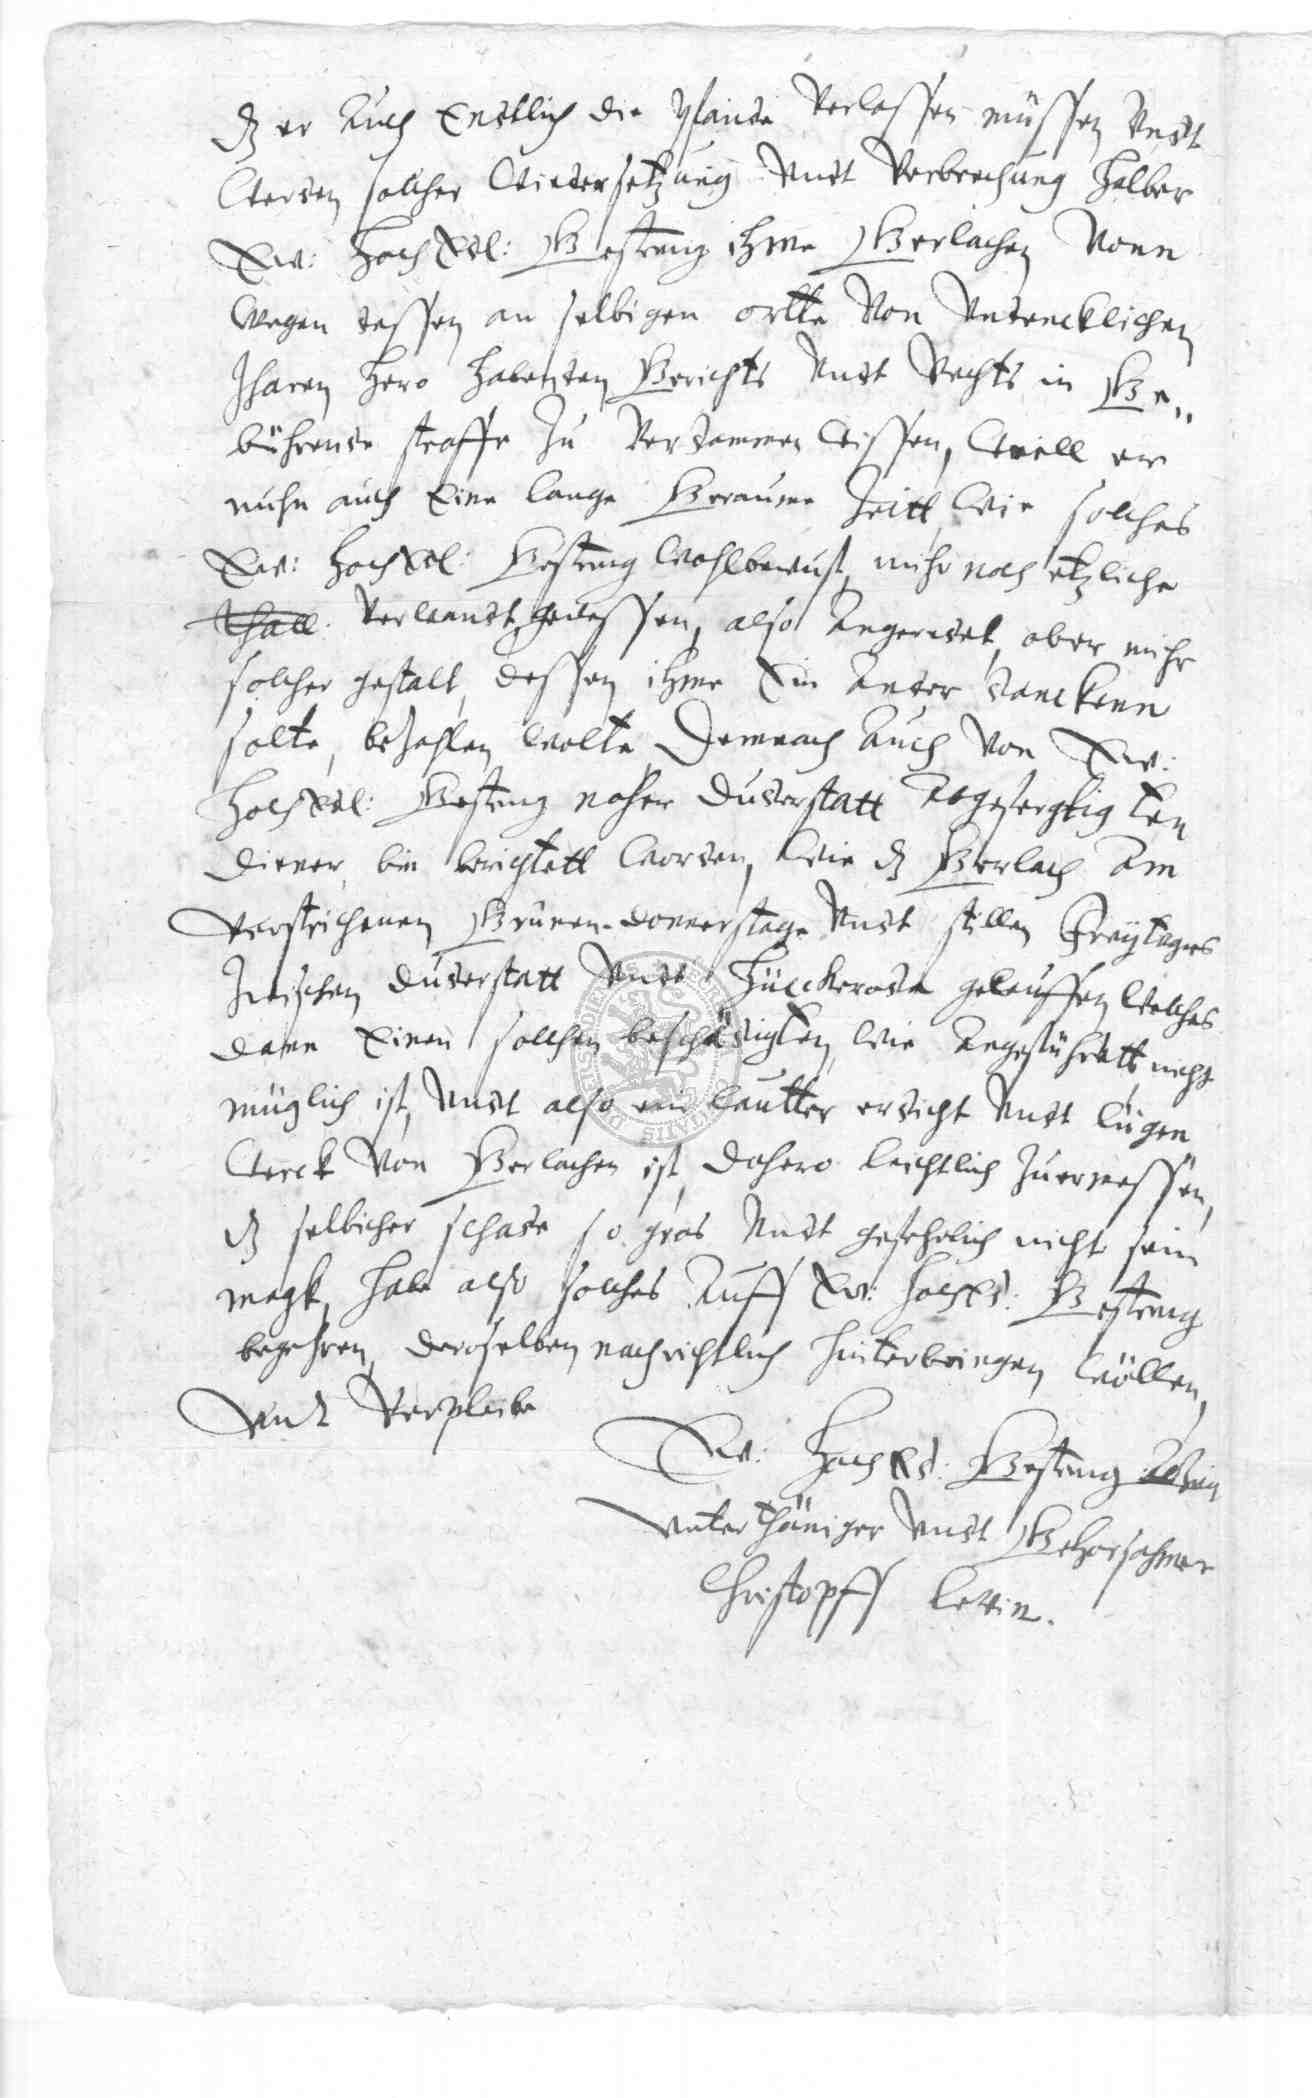 dz er Auch Endtlich die pfande Verlassen müssen Undt
Werden solcher Wiedersetzung Undt Verbrechung halber
Ew: Hoch Edl: Gestreng ihme Gerlachen Vonn
Wegen dessen an selbigen ortte Von Undencklichen
Jharen hero habenden Gerichts Undt Rechts in Ge„
bührende straffe zu Verdammen Wissen, Weill er
nuhn auch Eine lange Geraume Zeitt Wie solches
Ew: Hoch Edl: Gestreng Wohlbewust, mihr noch etzliche
thall: Verwandt gewessen, also Angeredet, aber mihr
solcher gestalt, dessen ihme Ein Ander dancken
solte, bezahlen Wolte, Demnach Auch Von Ew:
Hoch Edl: Gestreng naher Duderstatt Abgefertigten
Diener bin berichtett Worden, Wie dz Gerlach Am
Verstrichenen Grünen-donnerstage Undt stillen Freytages
Zwischen Duderstatt Undt Hilckerode gelauffen Welches
dann Einen sollchen beschädigten, Wie Angeführtt, nicht
müglich ist, Undt also ein lautter erdicht Undt lügen
Werck Von Gerlachen ist, dahero leichtlich zuermessen,
dz selbicher schade so gros Undt gefehrlich nicht sein
magk, habe also solches Auff Ew: Hoch Ed: Gestreng
begehren, deroselben nachrichtlich hinterbringen Wöllen,
Undt Verpleibe
Ew: Hoch Ed: Gestreng
Unterthäniger Undt Gehorsahmer
Christopff Levin.